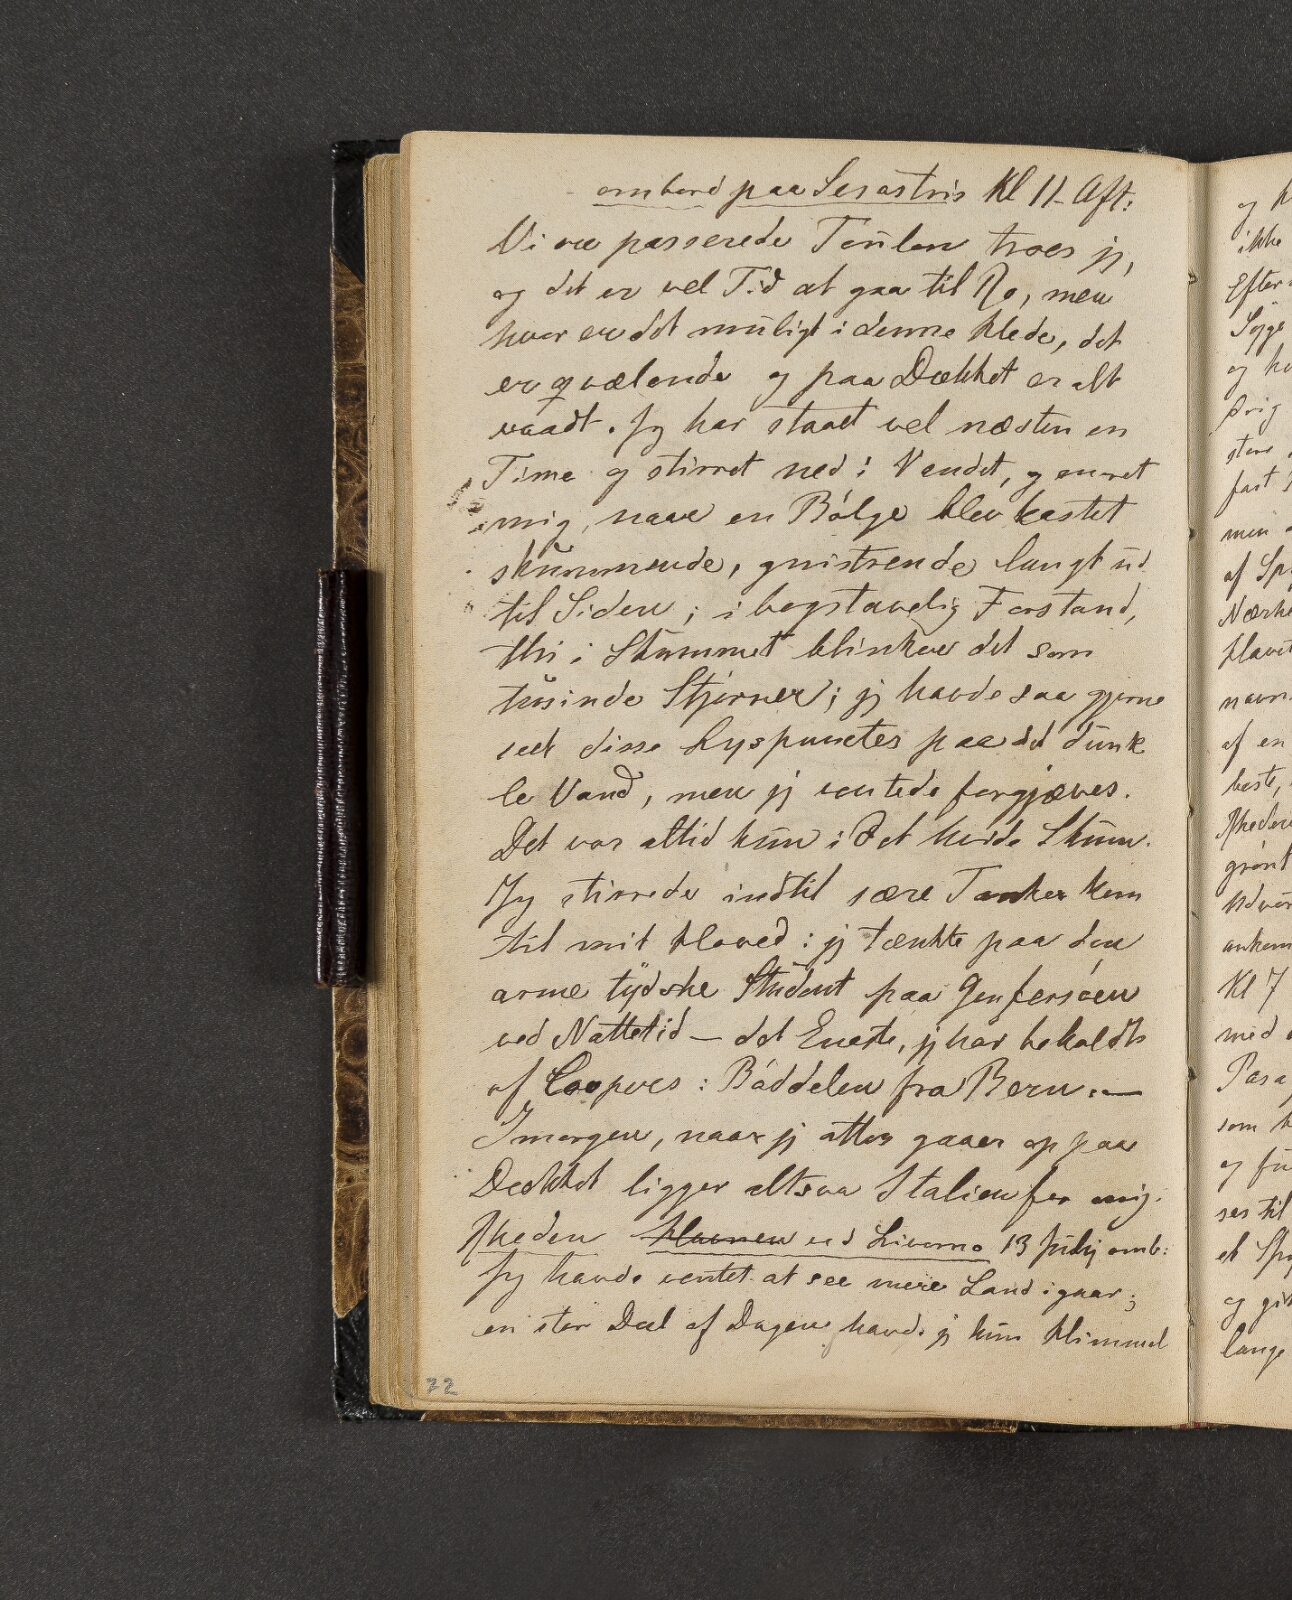 ombord paa Sesostris Kl 11 Aft:
Vi ere passerede Toulon troer jeg,
og det er vel Tid at gaa til Ro, men
hvor er det muligt i denne Hede, det
er qvælende og paa Dækket er alt
vaadt. Jeg har staaet vel næsten en
Time og stirret ned i Vandet, og moret
mig, naar en Bølge blev kastet
skummende, gnistrende langt ud
til Siden; i bogstavelig Forstand,
thi i Skummet blinker det som
tusinde Stjerner; jeg havde saa gjerne
seet disse Lyspuncter paa det dunk
le Vand, men jeg ventede forgjæves.
Det var altid kun i det hvide Skum.
Jeg stirrede indtil sære Tanker kom
til mit Hoved: jeg tænkte paa den
arme tydske Student paa Genfersøen
ved Nattetid – det Eneste, jeg har beholdt
af Coopers: Bøddelen fra Bern. —
Imorgen, naar jeg atter gaaer op paa
Dækket ligger altsaa Italien for mig.
Rheden Havnen ved Livorno 13 Julij omb:
Jeg havde ventet at see mere Land igaar;
en stor Deel af Dagen havde jeg kun Himmel
22
og
ikke
Efter
og
Ørig
store
fast
min
af
af en
Kl 7
med
som
og
ses til
et
og
lange